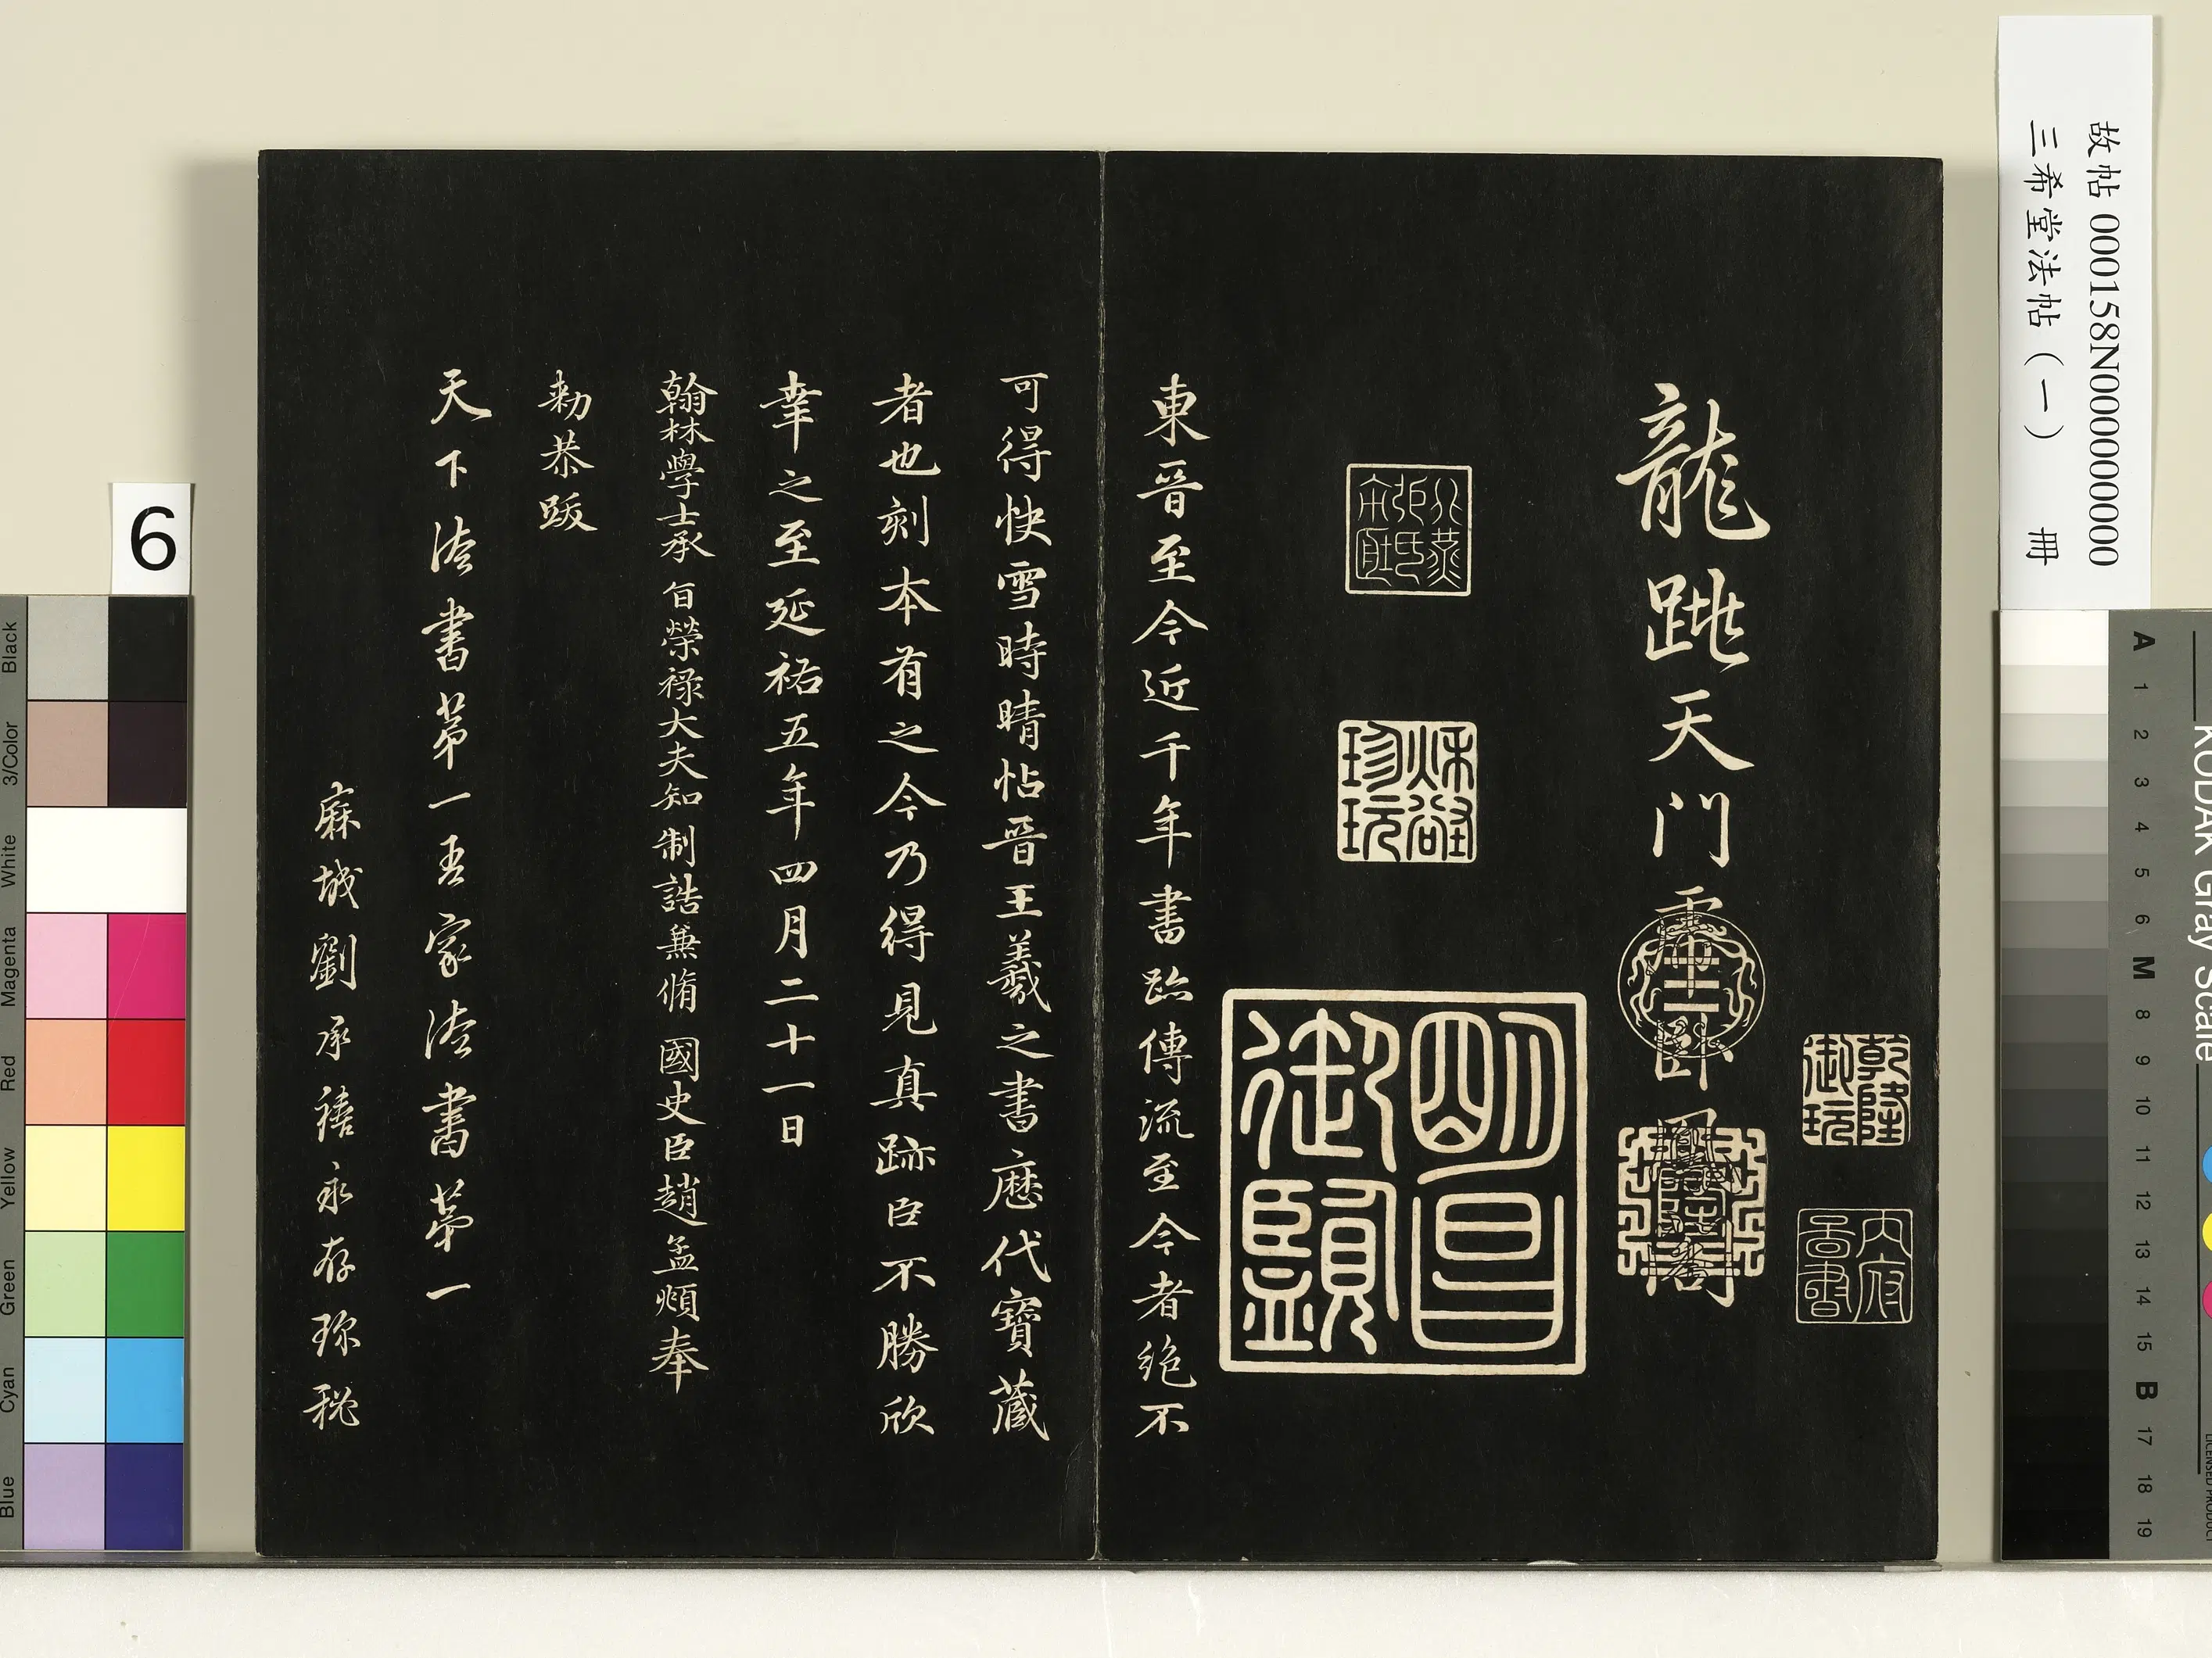 故帖 000158N000000000
三希堂法帖（一）　冊
龍跳天門虎卧鳳閣
乾隆御玩
内府圖書
明昌御覽
北燕張氏寶藏
珍玩
東晉至今近千年書跡傳流至今者絶不
可得快雪時晴帖晉王羲之書歷代寶藏
者也刻本有之今乃得見真跡臣不勝欣
幸之至延祐五年四月二十一日
翰林學士承旨榮祿大夫知制誥兼脩國史臣趙孟頫奉
勑恭跋
天下法書第一吾家法書第一
麻城劉承禧永存珎秘
6
Black
3/Color
White
Magenta
Red
Yellow
Green
Cyan
Blue
KODAK Gray Scale
A 1 2 3 4 5 6 M 8 9 10 11 12 13 14 15 B 17 18 19